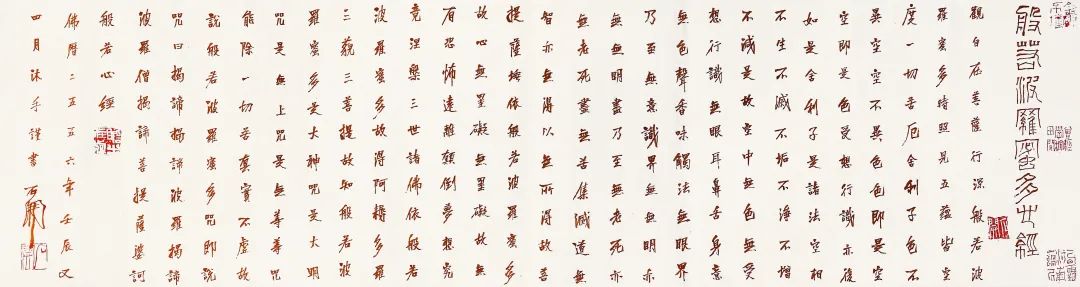 般若波羅蜜多心經
觀自在菩薩行深般若波
羅蜜多時照見五蘊皆空
度一切苦厄舍利子色不
異空空不異色色即是空
空即是色受想行識亦復
如是舍利子是諸法空相
不生不滅不垢不淨不增
不減是故空中無色無受
想行識無眼耳鼻舌身意
無色聲香味觸法無眼界
乃至無意識界無無明亦
無無明盡乃至無老死亦
無老死盡無苦集滅道無
智亦無得以無所得故菩
提薩埵依般若波羅蜜多
故心無罣礙無罣礙故無
有恐怖遠離顛倒夢想究
竟涅槃三世諸佛依般若
波羅蜜多故得阿耨多羅
三藐三菩提故知般若波
羅蜜多是大神咒是大明
咒是無上咒是無等等咒
能除一切苦真實不虛故
說般若波羅蜜多咒即說
咒曰揭諦揭諦波羅揭諦
波羅僧揭諦菩提薩婆訶
般若心經
佛曆二五五六年壬辰又
四月沐手謹書 石開